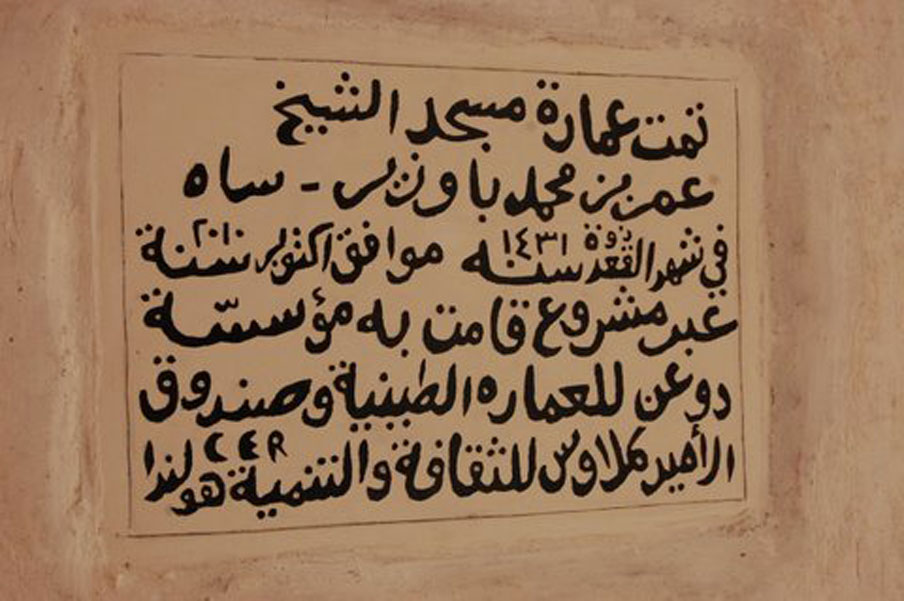 تمت عمارة مسجد الشيخ
عمر بن محمد باوزير - ساه
في شهر ذو القعدة سنه ١٤٣١ موافق اكتوبر سنة ٢٠١٠
عبر مشروع قامت به مؤسسة
دوعن للعماره الطينية وصندوق
الأمير كلاوس للثقافة والتنمية CER هولندا